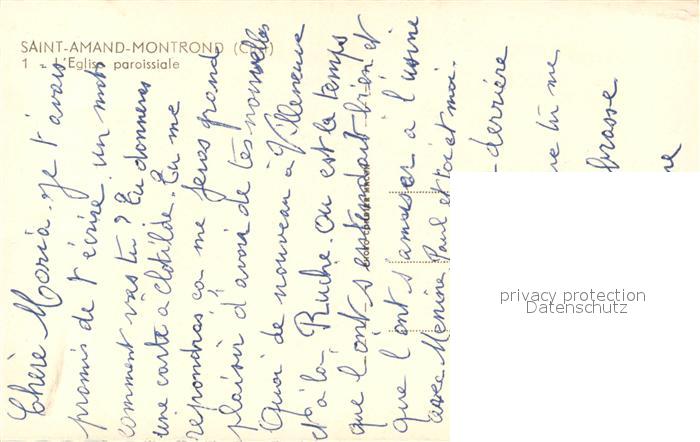 SAINT-AMAND-MONTROND (Cher)
1 - L'Eglise paroissiale
Chère Maria, je t'avais
promis de t'écrire un mot
comment vas tu? Tu donneras
une carte a Clotilde. Tu me
repondras ça me feras grand
plaisir d'avoir de tes nouvelles
Quoi de nouveau à Villeneuve
et à la Ruche. Ou est le temps
que l'ont s'entendait bien et
que l'ont s'amuser a l'usine
avec Paul et toi et moi.
derrière
tu me
brasse.
privacy protection
Datenschutz